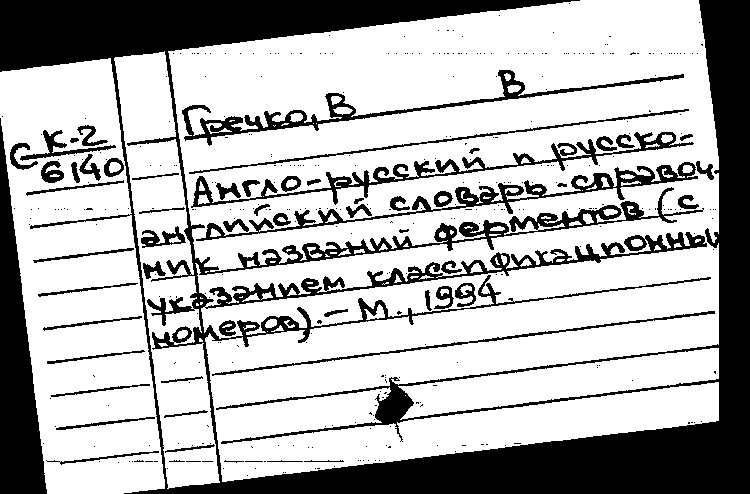 С К-2
6140
Гречко, В В
Англо-русский и русско-
английский словарь-справоч-
ник названий ферментов (с
указанием классификационных
номеров). – М., 1994.